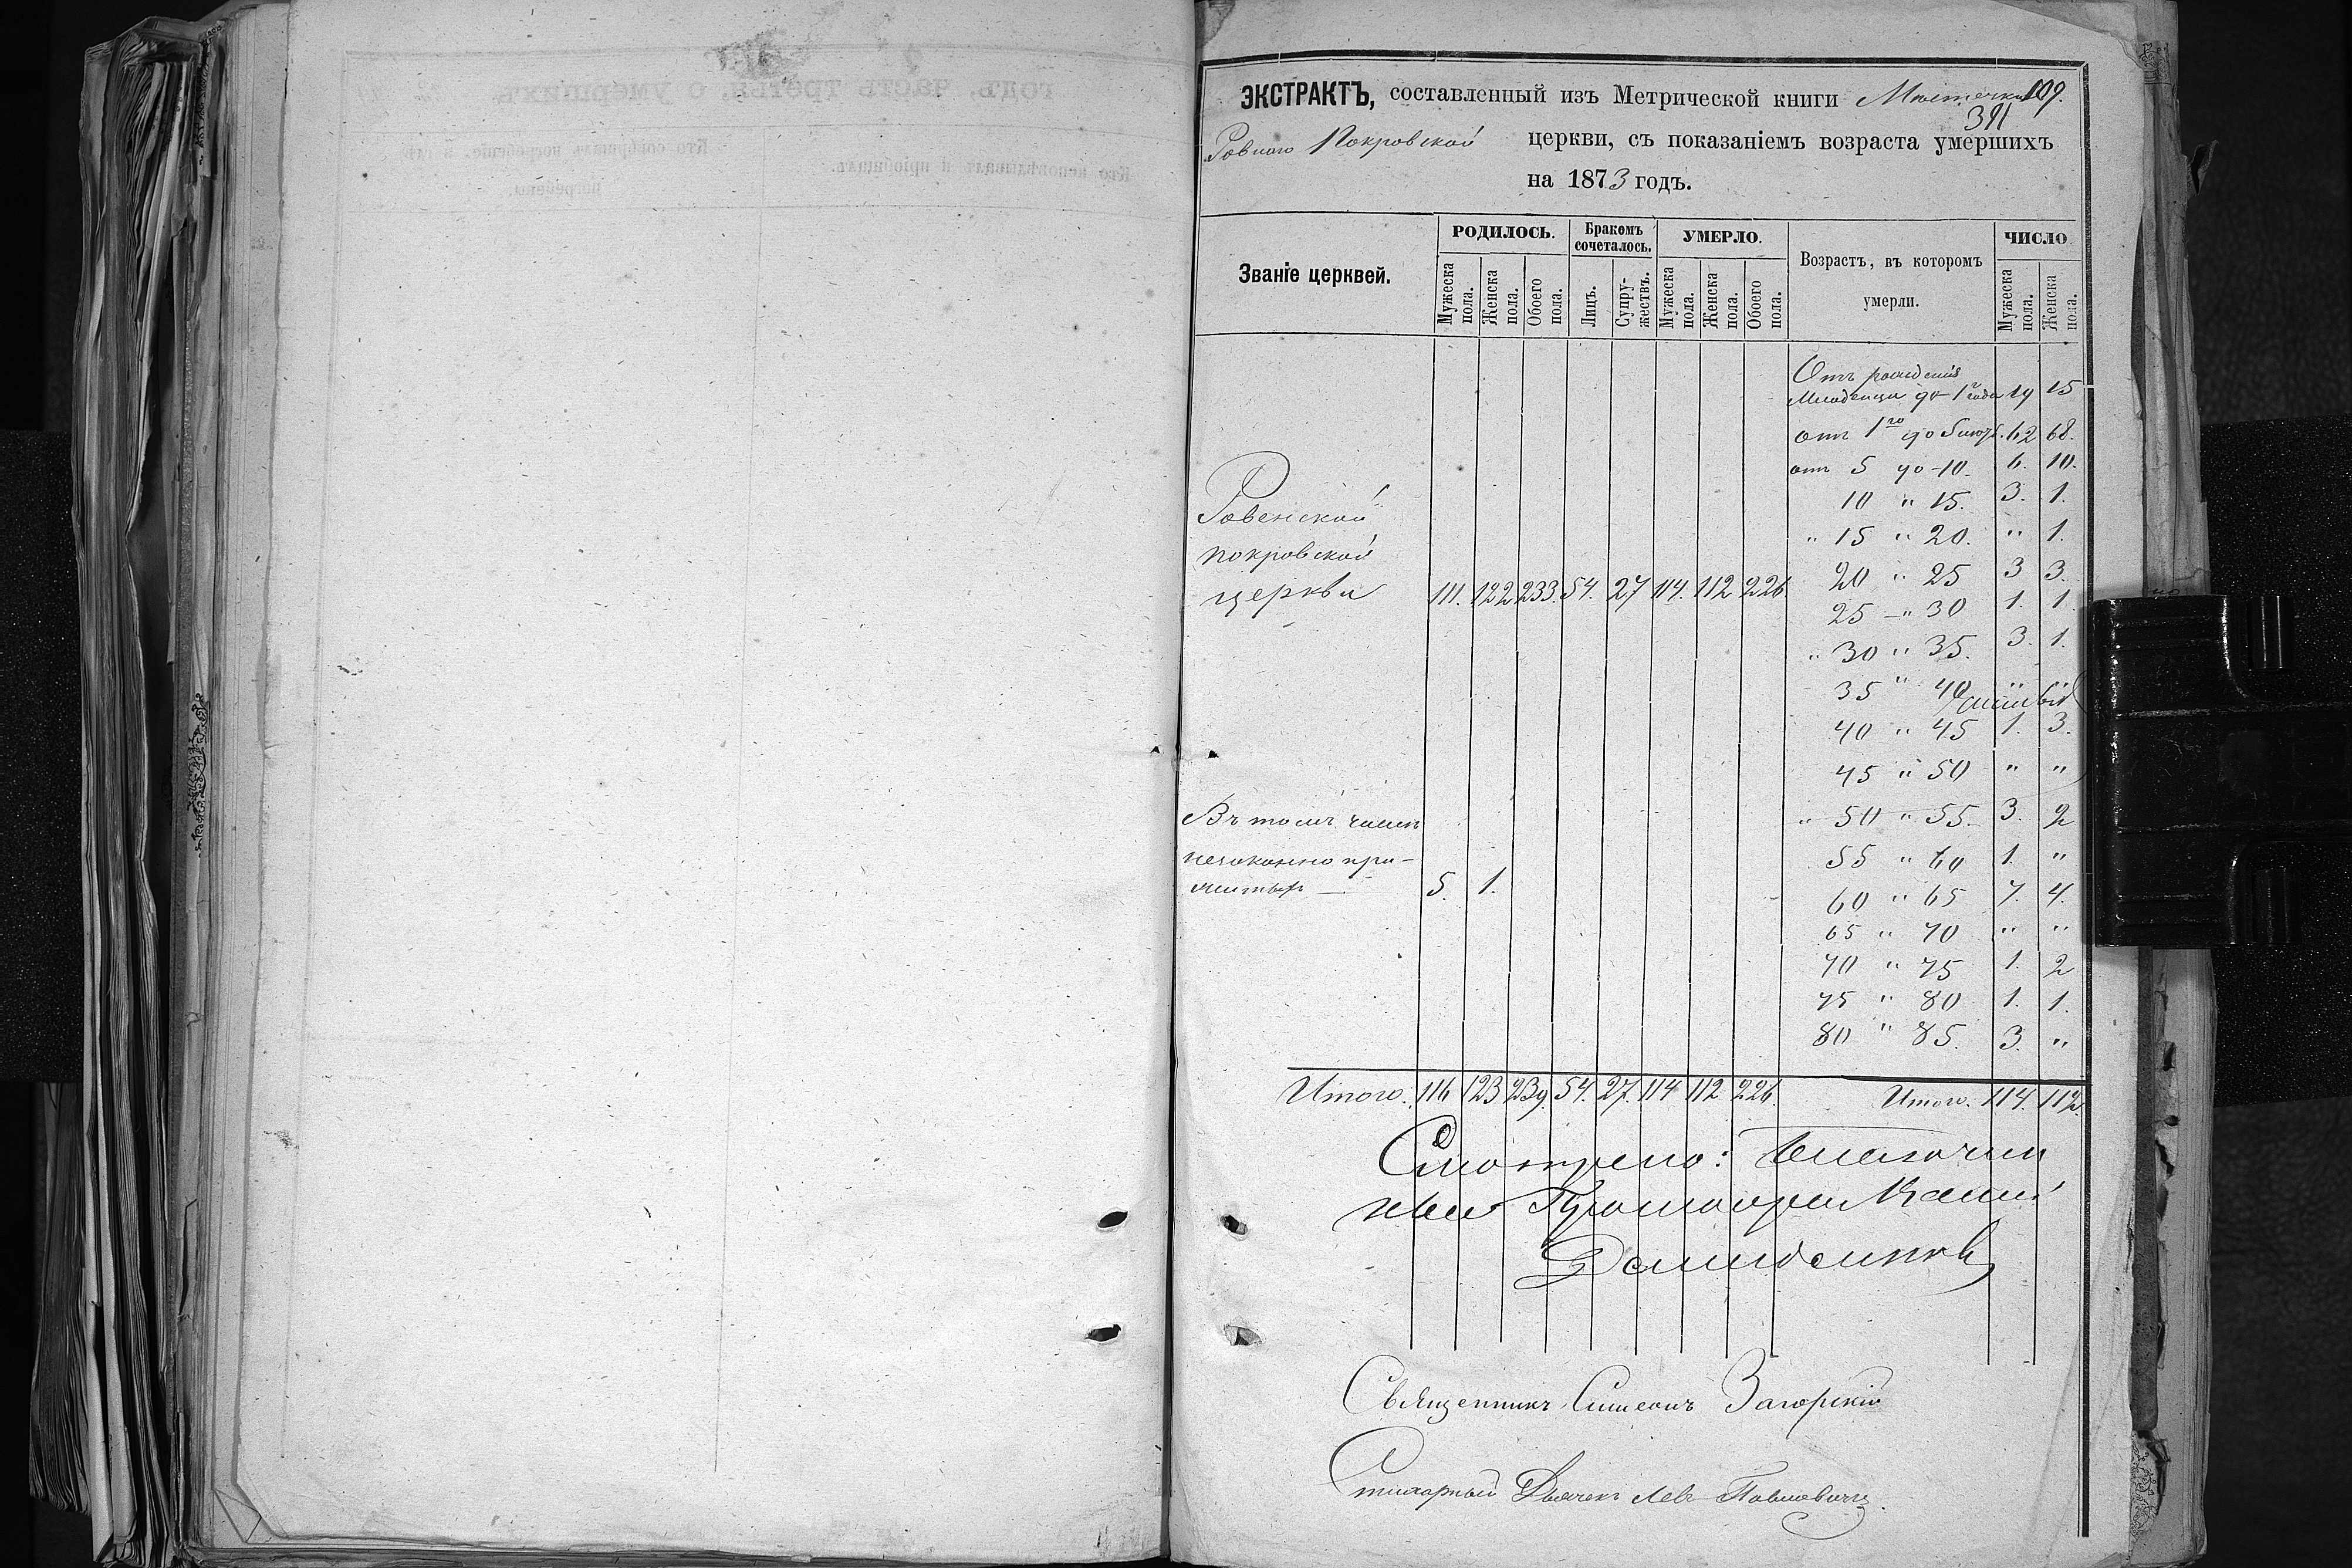 ЭКСТРАКТЪ, составленный изъ Метрической книги Мѣстечка 109.
391
Ровного Покровской церкви, съ показаніемъ возраста умершихъ
на 1873 годъ.
Званіе церквей. РОДИЛОСЬ. Бракомъ сочеталось. УМЕРЛО. Возрастъ, въ котором умерли. ЧИСЛО
Мужеска пола. Женска пола. Обоего пола. Лицъ. Супружествъ. Мужеска пола. Женска пола. Обоего пола. Мужеска пола. Женска пола.
Отъ рожденія
Младенцы до 1 года 19 15
отъ 1го до 5 62 68.
отъ 5 до 10. 6. 10.
10 " 15. 3. 1.
Ровенской
" 15 " 20. " 1.
покровской
20 " 25 3 3.
церкви 111. 122 233. 54. 27 114. 112 226
25 - " 30 1. 1.
" 30 " 35. 3. 1.
35 " 40 " "
40 " 45 1. 3.
45 " 50 " "
Въ томъ числѣ
" 50 " 55. 3. 2
незаконно при-
55 " 60 1. "
житыхъ — 5. 1.
60 " 65 7. 4.
65 " 70 " "
70 " 75 1. 2
75 " 80 1. 1.
80 " 85. 3. "
Итого. 116 123 239. 54. 27. 114 112 226. Итого. 114. 112.
Смотрено: Благочин
ный Протоіерей
Священникъ Симеонъ Загорскій
Стихарный Дьячекъ Левъ Павловичъ.